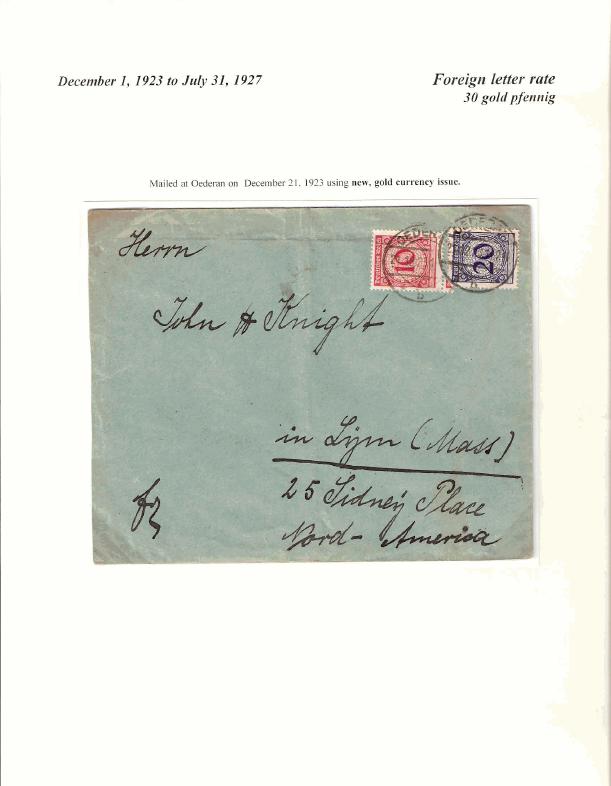 December 1, 1923 to July 31, 1927
Foreign letter rate
30 gold pfennig
Mailed at Oederan on December 21, 1923 using new, gold currency issue.
Herrn
10
OEDER
b
20
OEDER
b
John H Knight
in Lÿnn (Mass)
25 Sidney Place
Nord- America